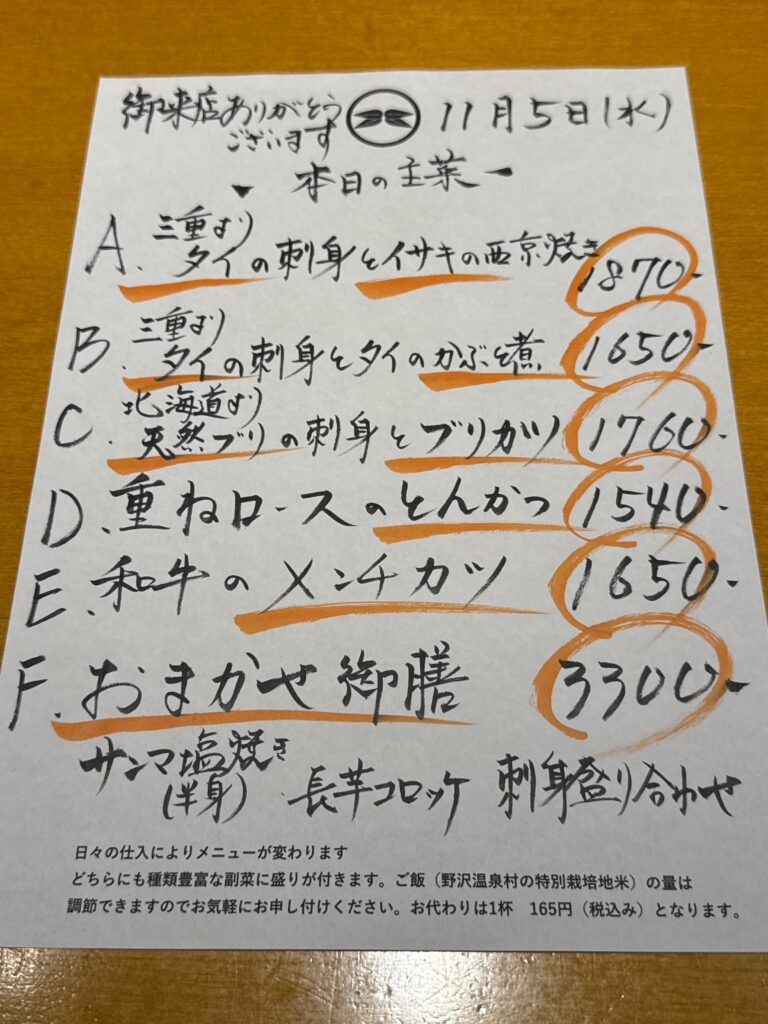 御来店ありがとう
ございます
11月5日(水)
本日の主菜
A. 三重より
タイの刺身とイサキの西京焼き 1870-
B. 三重より
タイの刺身とタイのかぶと煮 1650-
C. 北海道より
天然ブリの刺身とブリカツ 1760-
D. 重ねロースのとんかつ 1540-
E. 和牛のメンチカツ 1650-
F. おまかせ御膳 3300-
サンマ塩焼き
(半身)
長芋コロッケ 刺身盛り合わせ
日々の仕入によりメニューが変わります
どちらにも種類豊富な副菜に盛りが付きます。ご飯（野沢温泉村の特別栽培地米）の量は
調節できますのでお気軽にお申し付けください。お代わりは1杯　165円（税込み）となります。